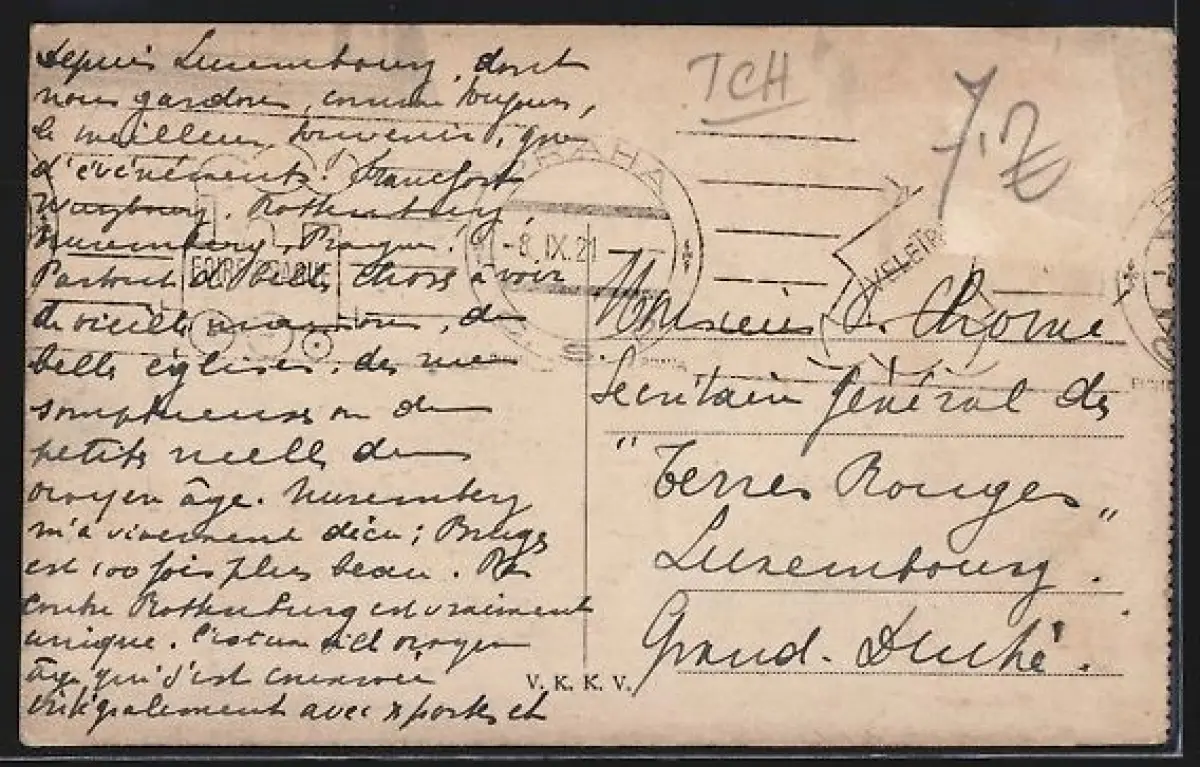 Depuis Luxembourg, dont
nous gardons, comme toujours,
le meilleur souvenir, que
d'événements! Francfort
Wurzbourg, Rothenburg,
Nuremberg, Prague!
Partout de belles choses à voir
de vieilles maisons, de
belles églises, des rues
somptueuses ou de
petites ruelles du
moyen âge. Nuremberg
m'a vivement déçu; Bruges
est 100 fois plus beau. Par
contre Rothenburg est vraiment
unique. C'est un vieil moyen
âge qui s'est conservé
intégralement avec portes et
TCH
PRAHA
-8.IX.21
VELETR
Monsieur Chomé
Secrétaire général des
"Terres Rouges"
Luxembourg.
Grand-Duché.
V. K. K. V.